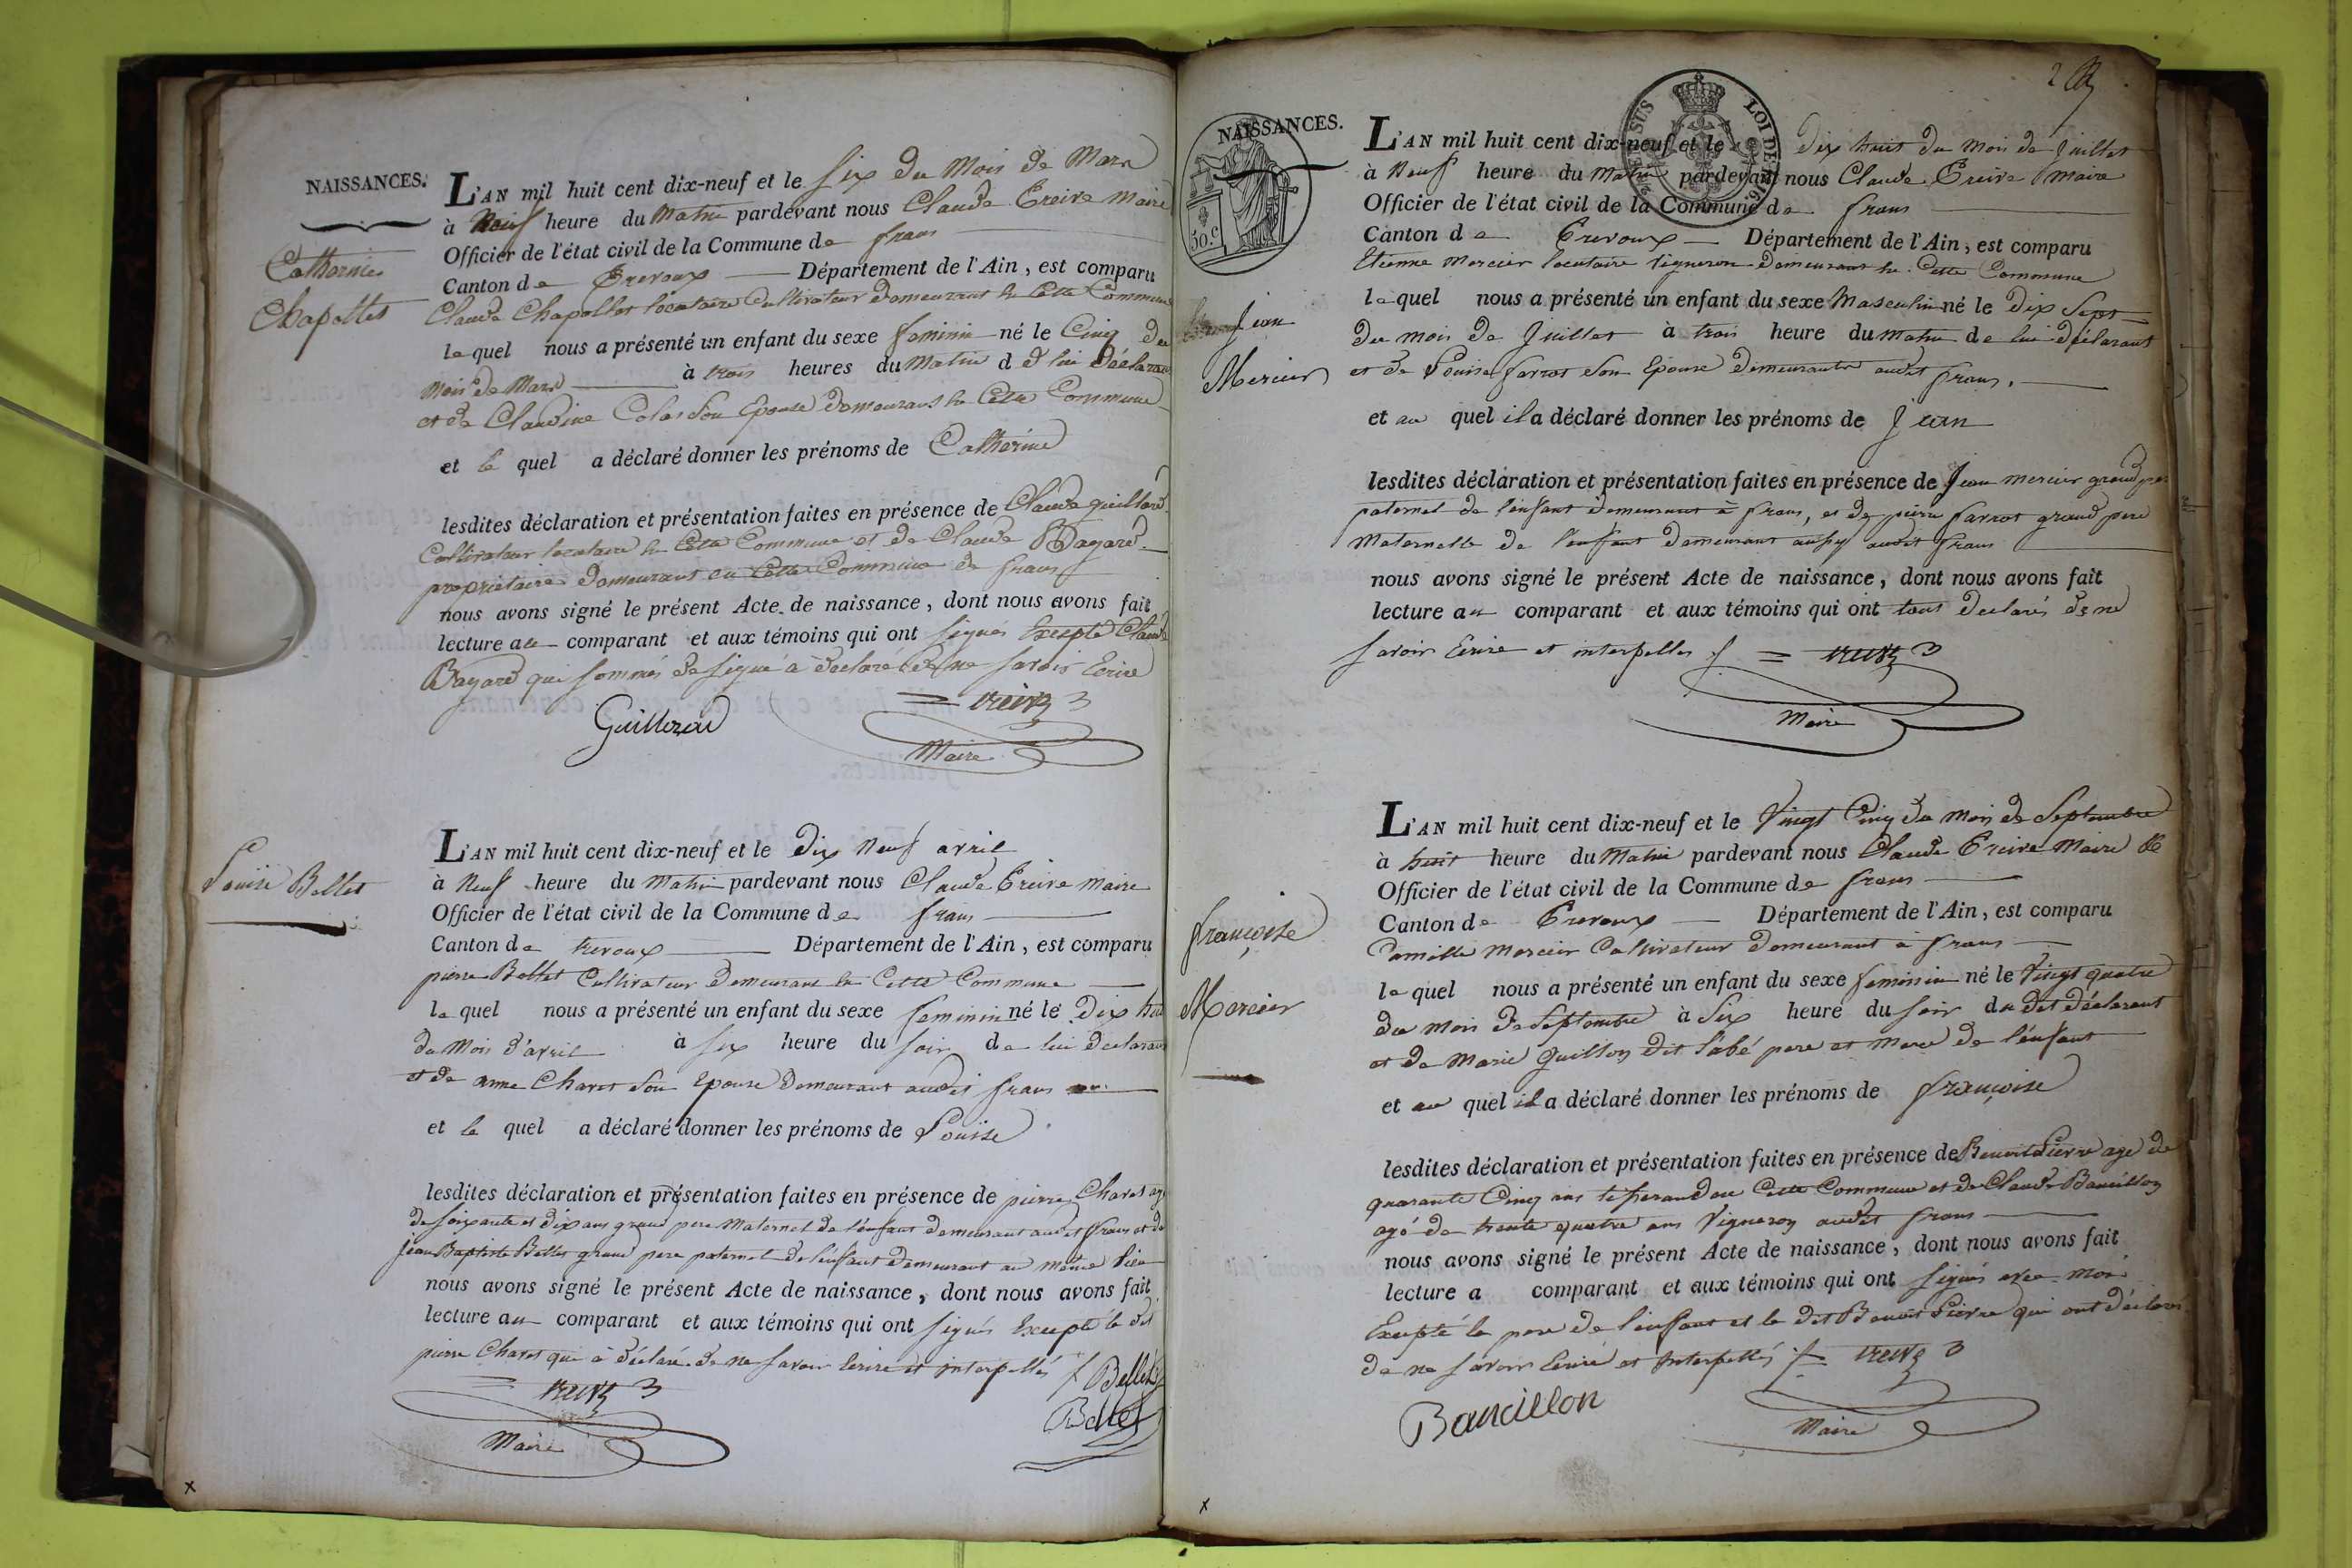 NAISSANCES.
Catherine
Chapollet
L'AN mil huit cent dix-neuf et le six du Mois de Mars
à Neuf heure du Matin pardevant nous Claude Treive Maire
Officier de l'état civil de la Commune de frans
Canton de Trevoux Département de l'Ain, est comparu
Claude Chapollet locataire Cultivateur demeurant en Cette Commune
lequel nous a présenté un enfant du sexe feminin né le Cinq du
Mois de Mars à trois heures du Matin de lui déclarant
et de Claudine Colas son Epouse demeurant en Cette Commune
et le quel a déclaré donner les prénoms de Catherine
lesdites déclaration et présentation faites en présence de Claude
Cultivateur locataire en Cette Commune et de Claude Bayard
propriétaire demeurant en Cette Commune de frans
nous avons signé le présent Acte de naissance, dont nous avons fait
lecture au comparant et aux témoins qui ont signés Excepté Claude
Bayard qui sommés de signé à déclaré de ne savoir Ecrire
treive
Maire
Louise Bellet
L'AN mil huit cent dix-neuf et le dix Neuf avril
à Neuf heure du Matin pardevant nous Claude Treive Maire
Officier de l'état civil de la Commune de frans
Canton de trevoux Département de l'Ain, est comparu
pierre Bellet Cultivateur demeurant en Cette Commune
lequel nous a présenté un enfant du sexe feminin né le Dix huit
du Mois d'avril à six heure du soir de lui declarant
et de anne Charet son Epouse demeurant audit frans
et le quel a déclaré donner les prénoms de Louise
lesdites déclaration et présentation faites en présence de pierre Charet agé
de soixante et dix ans grand pere Maternel de l'énfant demeurant audit frans et de
Jean Baptiste Bellet grand pere paternel de l'énfant demeurant au même lieu
nous avons signé le présent Acte de naissance, dont nous avons fait
lecture au comparant et aux témoins qui ont signés Excepté le dit
pierre Charet qui à déclaré de ne savoir Ecrire et interpellés
Bellet
treive
Bellet
Maire
2
SUS
LOI DE 1816
50.c
NAISSANCES.
Jean
Mercier
L'AN mil huit cent dix-neuf et le dix huit du Mois de Juillet
à Neuf heure du Matin pardevant nous Claude Treive Maire
Officier de l'état civil de la Commune de frans
Canton de Trevoux Département de l'Ain, est comparu
Etienne Mercier locataire Vigneron demeurant en Cette Commune
lequel nous a présenté un enfant du sexe Masculin né le dix Sept
du mois de Juillet à trois heure du matin de lui déclarant
et de Louise farrot son Epouse demeurante audit frans.
et au quel il a déclaré donner les prénoms de Jean
lesdites déclaration et présentation faites en présence de Jean Mercier grand pere
paternel de l'énfant demeurant à frans, et de pierre farrot grand pere
Maternelle de l'énfant demeurant aussy audit frans
nous avons signé le présent Acte de naissance, dont nous avons fait
lecture au comparant et aux témoins qui ont tous declarés de ne
savoir Ecrire et interpelles
treive
Maire
françoise
Mercier
L'AN mil huit cent dix-neuf et le Vingt Cinq du Mois de Septembre
à huit heure du Matin pardevant nous Claude Treive Maire &
Officier de l'état civil de la Commune de frans
Canton de Trevoux Département de l'Ain, est comparu
Camille Mercier Cultivateur demeurant à frans
lequel nous a présenté un enfant du sexe feminin né le Vingt quatre
du Mois de Septembre à Six heure du soir du dit déclarant
et de Marie Guillon dit l'abé pere et Mere de l'énfant
et au quel il a déclaré donner les prénoms de françoise
lesdites déclaration et présentation faites en présence de Benoit Pierre age de
quarante Cinq ans tisserand en Cette Commune et de Claude Bancillon
agé de trente quatre ans Vigneron audit frans
nous avons signé le présent Acte de naissance, dont nous avons fait
lecture a comparant et aux témoins qui ont signés avec Moi
Excepté le pere de l'énfant et le dit Benoit Pierre qui ont déclarés
de ne savoir Ecrire et Interpellés
treive
Bancillon
Maire